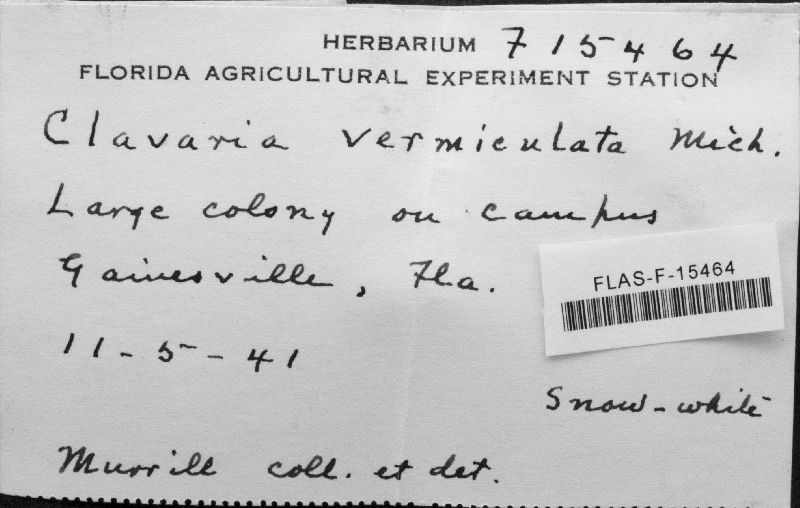 HERBARIUM F 15464
FLORIDA AGRICULTURAL EXPERIMENT STATION
Clavaria vermiculata Mich.
Large colony on campus
Gainesville, Fla.
FLAS-F-15464
11-5-41
Snow-white
Murrill coll. et det.